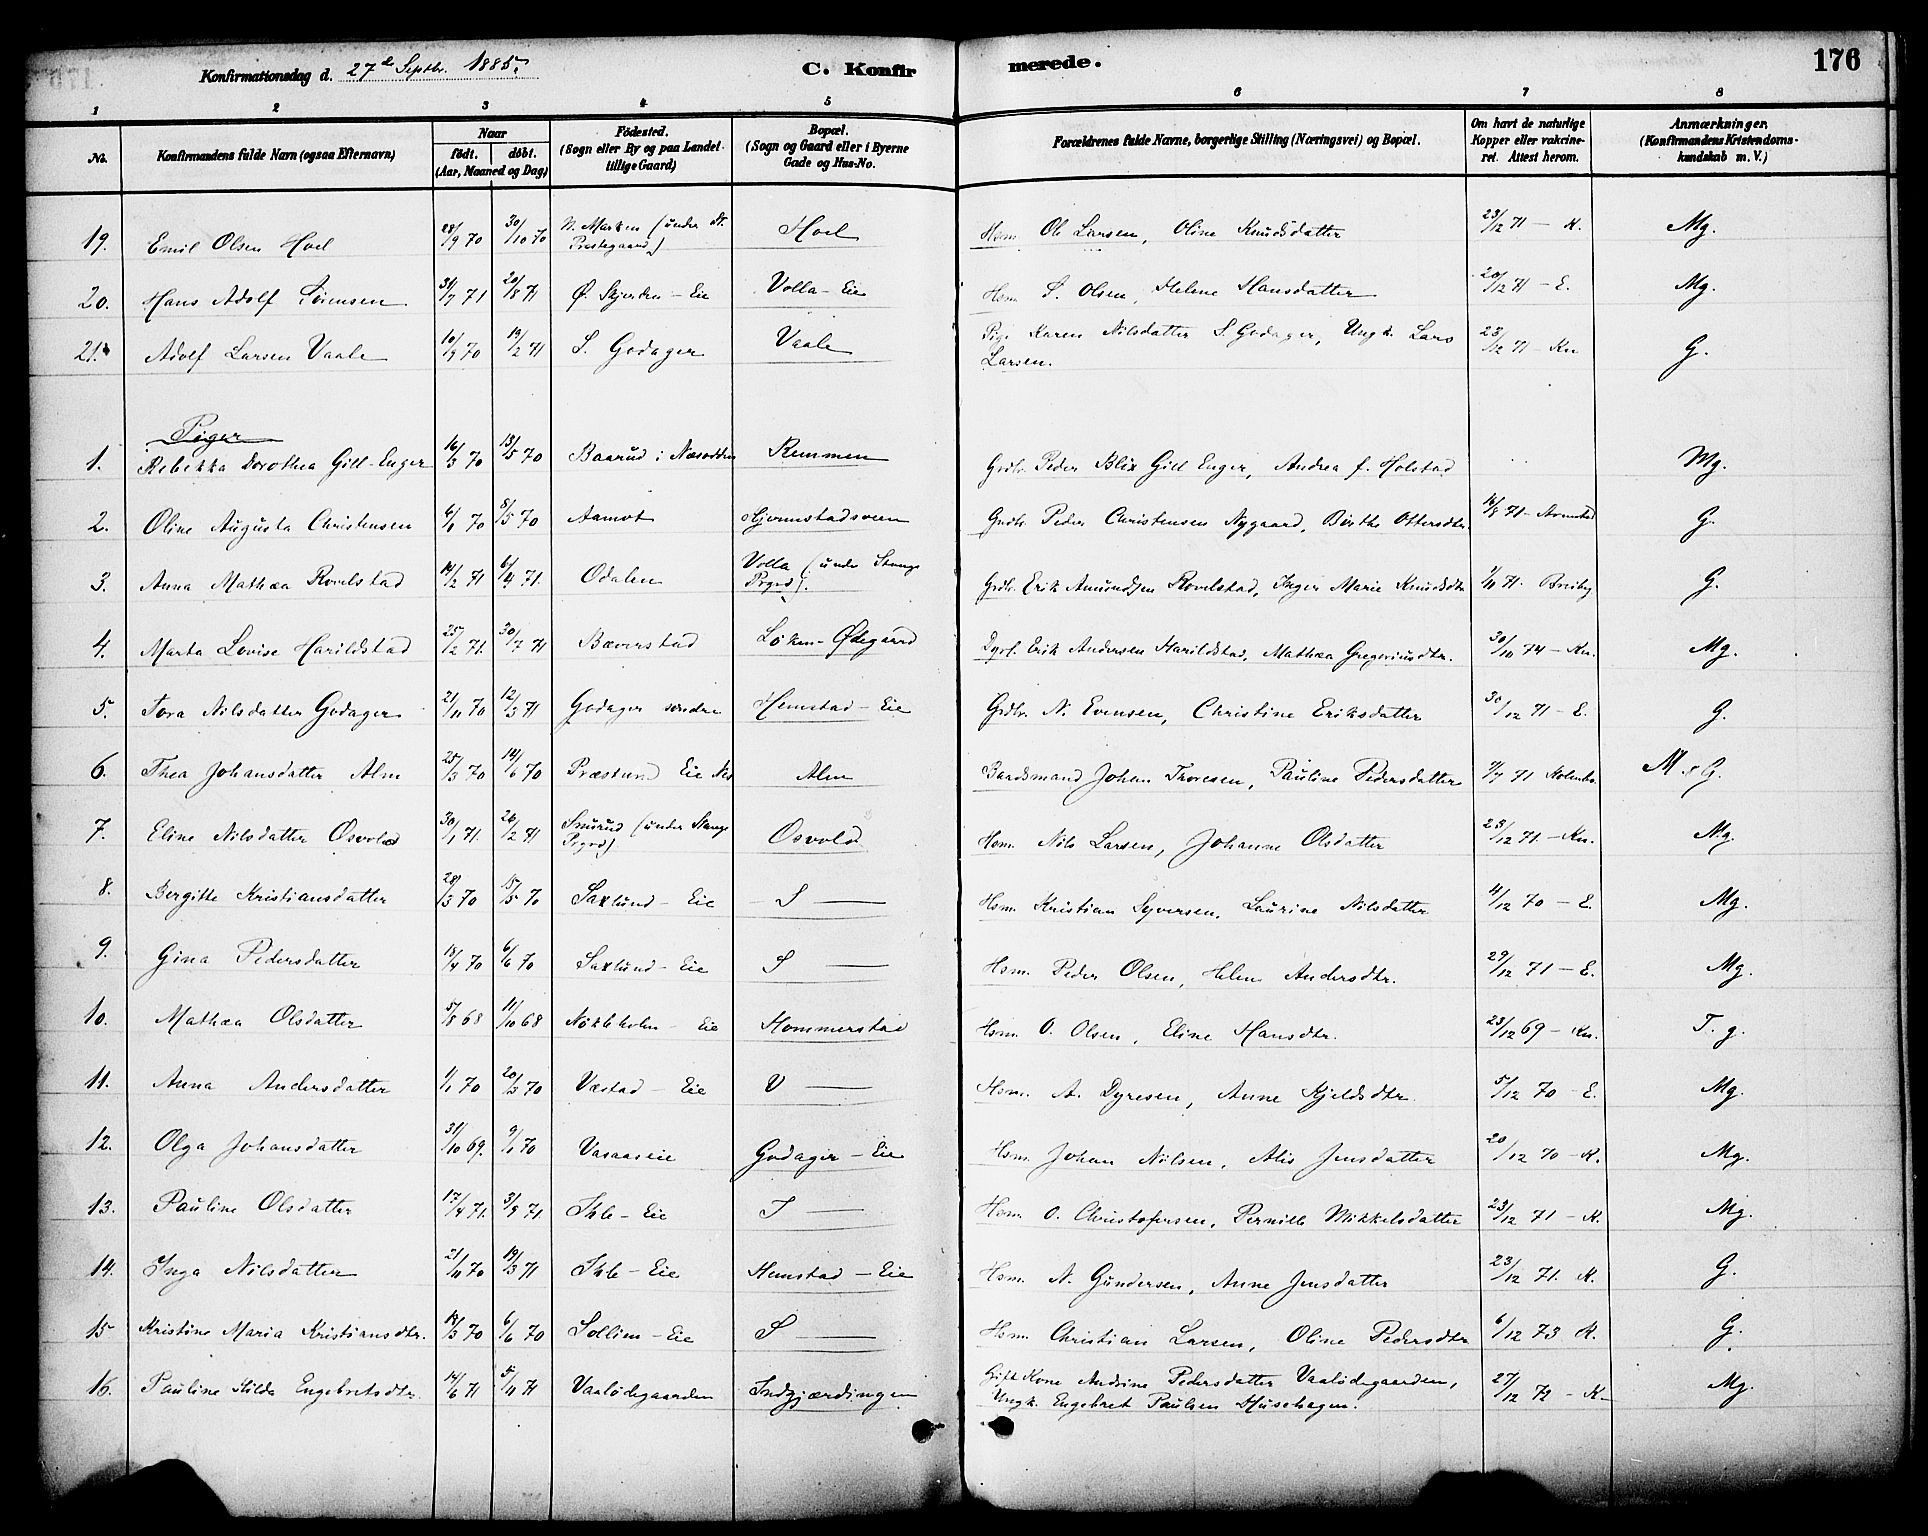 Konfirmationsdag d. 27de Septbr. 1885. C. Konfirmerede. 176
1 2 3 4 5 6 7 8
No. Konfirmandens fulde Navn (ogsaa Efternavn) Naar födt. döbt. (Aar, Maaned og Dag) Födested. (Sogn eller By og paa Landet tillige Gaard) Bopæl. (Sogn og Gaard eller i Byerne Gade og Hus-No. Forældrenes fulde Navne, borgerlige Stilling (Næringsvei) og Bopæl. Om havt de naturlige Kopper eller vakcineret. Attest herom. Anmærkninger. (Konfirmandens Kristendomskundskab m. V.)
19. Emil Olsen Hoel 28/9 70 30/10 70 N. Marken (under St. Prestegaard) Hoel Hsm. Ole Larsen, Oline Knudsdatter 23/12 71 - K. Mg.
20. Hans Adolf Sörensen 31/7 71 20/8 71 Ø. Skjerden - Eie Volla - Eie Hsm. S. Olsen, Helene Hansdatter 20/12 71 - E. Mg.
21. Adolf Larsen Vaale 10/9 70 19/2 71 S. Godager Vaale Pige Karen Nilsdatter S. Godager, Ungk. Lars
Larsen. 23/12 71 - Kn G.
Piger
1. Rebekka Dorothea Gill-Enger 16/3 70 13/5 70 Baarud i Næsodden Remmen Grdbr. Peder Blix Gill Enger, Andrea f. Holstad Mg.
2. Oline Augusta Christensen 6/1 70 8/5 70 Aamot Hjemstadsveen Grdbr. Peder Christensen Nygaard, Birthe Ottersdtr. 16/8 71 - G.
3. Anna Mathea Rovelstad 14/2 71 6/4 71. Odalen Volla (under Stange Prgrd). Grdbr. Erik Amundsen Rovelstad, Inger Marie Knudsdtr 1/11 71. G.
4. Marta Lovise Harildstad 25/2 71. 30/7 71 Bæverstad Löken - Ödegaard Erik Andersen Harildstad, Mathea Gregeriusdtr. 30/10 74 - Kn. Mg.
5. Tora Nilsdatter Godager 21/11 70 12/3 71 Godager söndre Hemstad - Eie Grdbr. N. Evensen, Christine Eriksdatter 30/12 71 - E. G.
6. Thea Johansdatter Alm 25/3 70 14/6 70 Præstund Eie Nes Alm Baadsmand Johan Thoresen, Pauline Pedersdatter 7/7 71 Holmbo M. x G.
7. Eline Nilsdatter Osvold 30/1 71. 26/2 71 Snurud (under Stange Prgrd) Osvold Hsm. Nils Larsen, Johanne Olsdatter 23/12 71 - Kn. Mg.
8. Bergitte Kristiansdatter 28/3 70 15/5 70 Saxlund - Eie S — Hsm. Kristian Syversen, Laurine Nilsdatter 4/12 70 - E. Mg.
9. Gina Pedersdatter 18/4 70 6/6 70 Saxlund - Eie S — Hsm. Peder Olsen, Helene Andersdtr. 29/12 71 - E. Mg.
10. Mathea Olsdatter 5/8 68 11/10 68 Nökleholm - Eie Hommerstad Hsm. O. Olsen, Eline Hansdtr. 23/12 69 - Kn. T. g.
11. Anna Andersdatter 1/1 70 20/3 70 Væstad - Eie V — Hsm. A. Dyresen, Anne Kjeldsdtr. 5/12 70 - E. Mg.
12. Olga Johansdatter 31/10 69. 9/1 70 Vasaaseie Godager - Eie Hsm. Johan Nilsen, Alis Jensdatter 20/12 70 - K. Mg.
13. Pauline Olsdatter 17/4 71. 3/9 71. Ihle - Eie I — Hsm. O. Christofersen, Pernille Mikkelsdatter 23/12 71 - K. Mg.
14. Inga Nilsdatter 21/11 70 19/3 71 Ihle - Eie Hemstad - Eie Hsm. N. Gundersen, Anne Jensdatter 23/12 71. K. G.
15 Kristine Maria Kristiansdtr. 14/3 70 6/6 70 Solliem - Eie S — Hsm. Christian Larsen, Oline Pedersdtr 6/12 73 K. G.
16. Pauline Hilda Engebretsdtr. 14/6 71 5/11 71 Vaalödegaarden Indgjærdingen Gift Kone Andrine Pedersdatter Vaalödegaarden,
Ungk. Engebret Paulsen Husehagen. 27/12 72 - K - Mg.